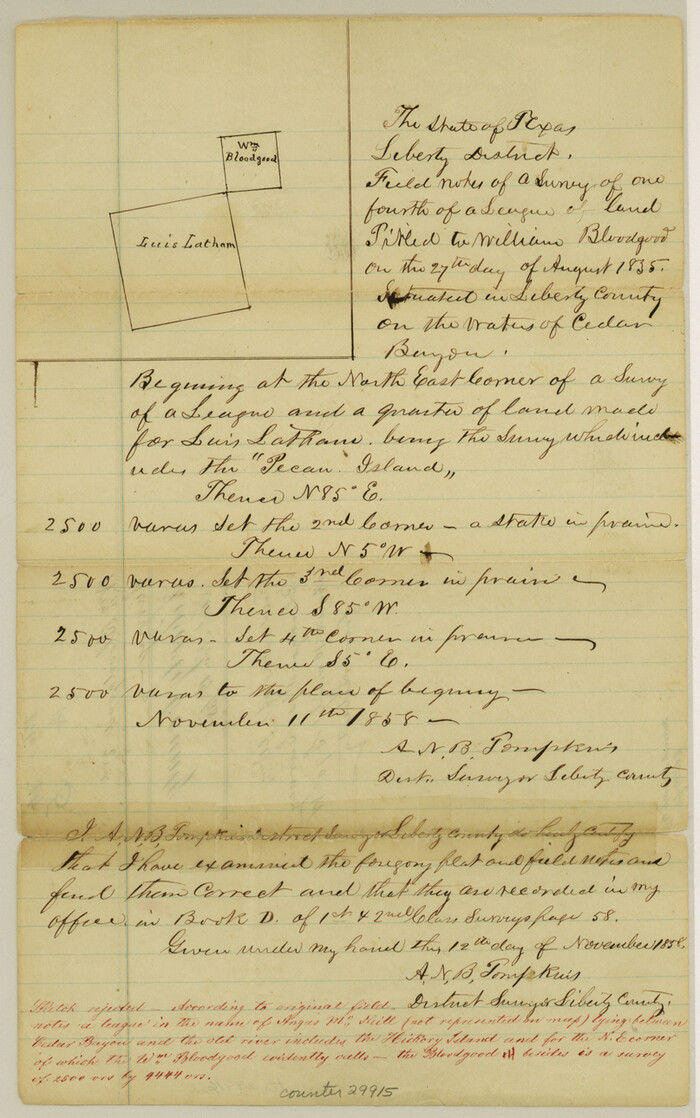 Wm
Bloodgood
Luis Latham
The State of Texas
Liberty District.
Field notes of a Survey of one
fourth of a League of land
Titled to William Bloodgood
on the 27th day of August 1835.
Situated in Liberty County
on the waters of Cedar
Bayou.
Begining at the North East Corner of a Survy
of a League and a quarter of land made
for Luis Latham. being the Survy which incl-
udes the "Pecan Island"
Thence N 85° E.
2500 varas Set the 2nd Corner - a stake in prairie.
Thence N 5° W -
2500 varas. Set the 3rd Corner in prairie -
Thence S 85° W.
2500 varas - Set 4th Corner in prairie -
Thence S 5° E.
2500 varas to the place of beginny -
November 11th 1858 -
A. N. B. Tompkins
Dist. Surveyor Liberty County
I A. N. B Tompkins District Surveyor Liberty County do hereby Certify
that I have examined the foregoing plat and field notes and
find them Correct and that they are recorded in my
office in Book D. of 1st & 2nd Class Surveys page 58.
Given under my hand this 12th day of November 1858.
A. N. B. Tompkins
District Surveyor Liberty County.
Sketch rejected According to original field
notes a league in the name of Angus Mc Neill (not represented on map) lying between
Cedar Bayou and the old river includes the Hickory Island and for the N. E corner
of which the Wm Bloodgood evidently calls - the Bloodgood besides is a survey
of 2500 vrs by 4444 vrs.
counter 29915